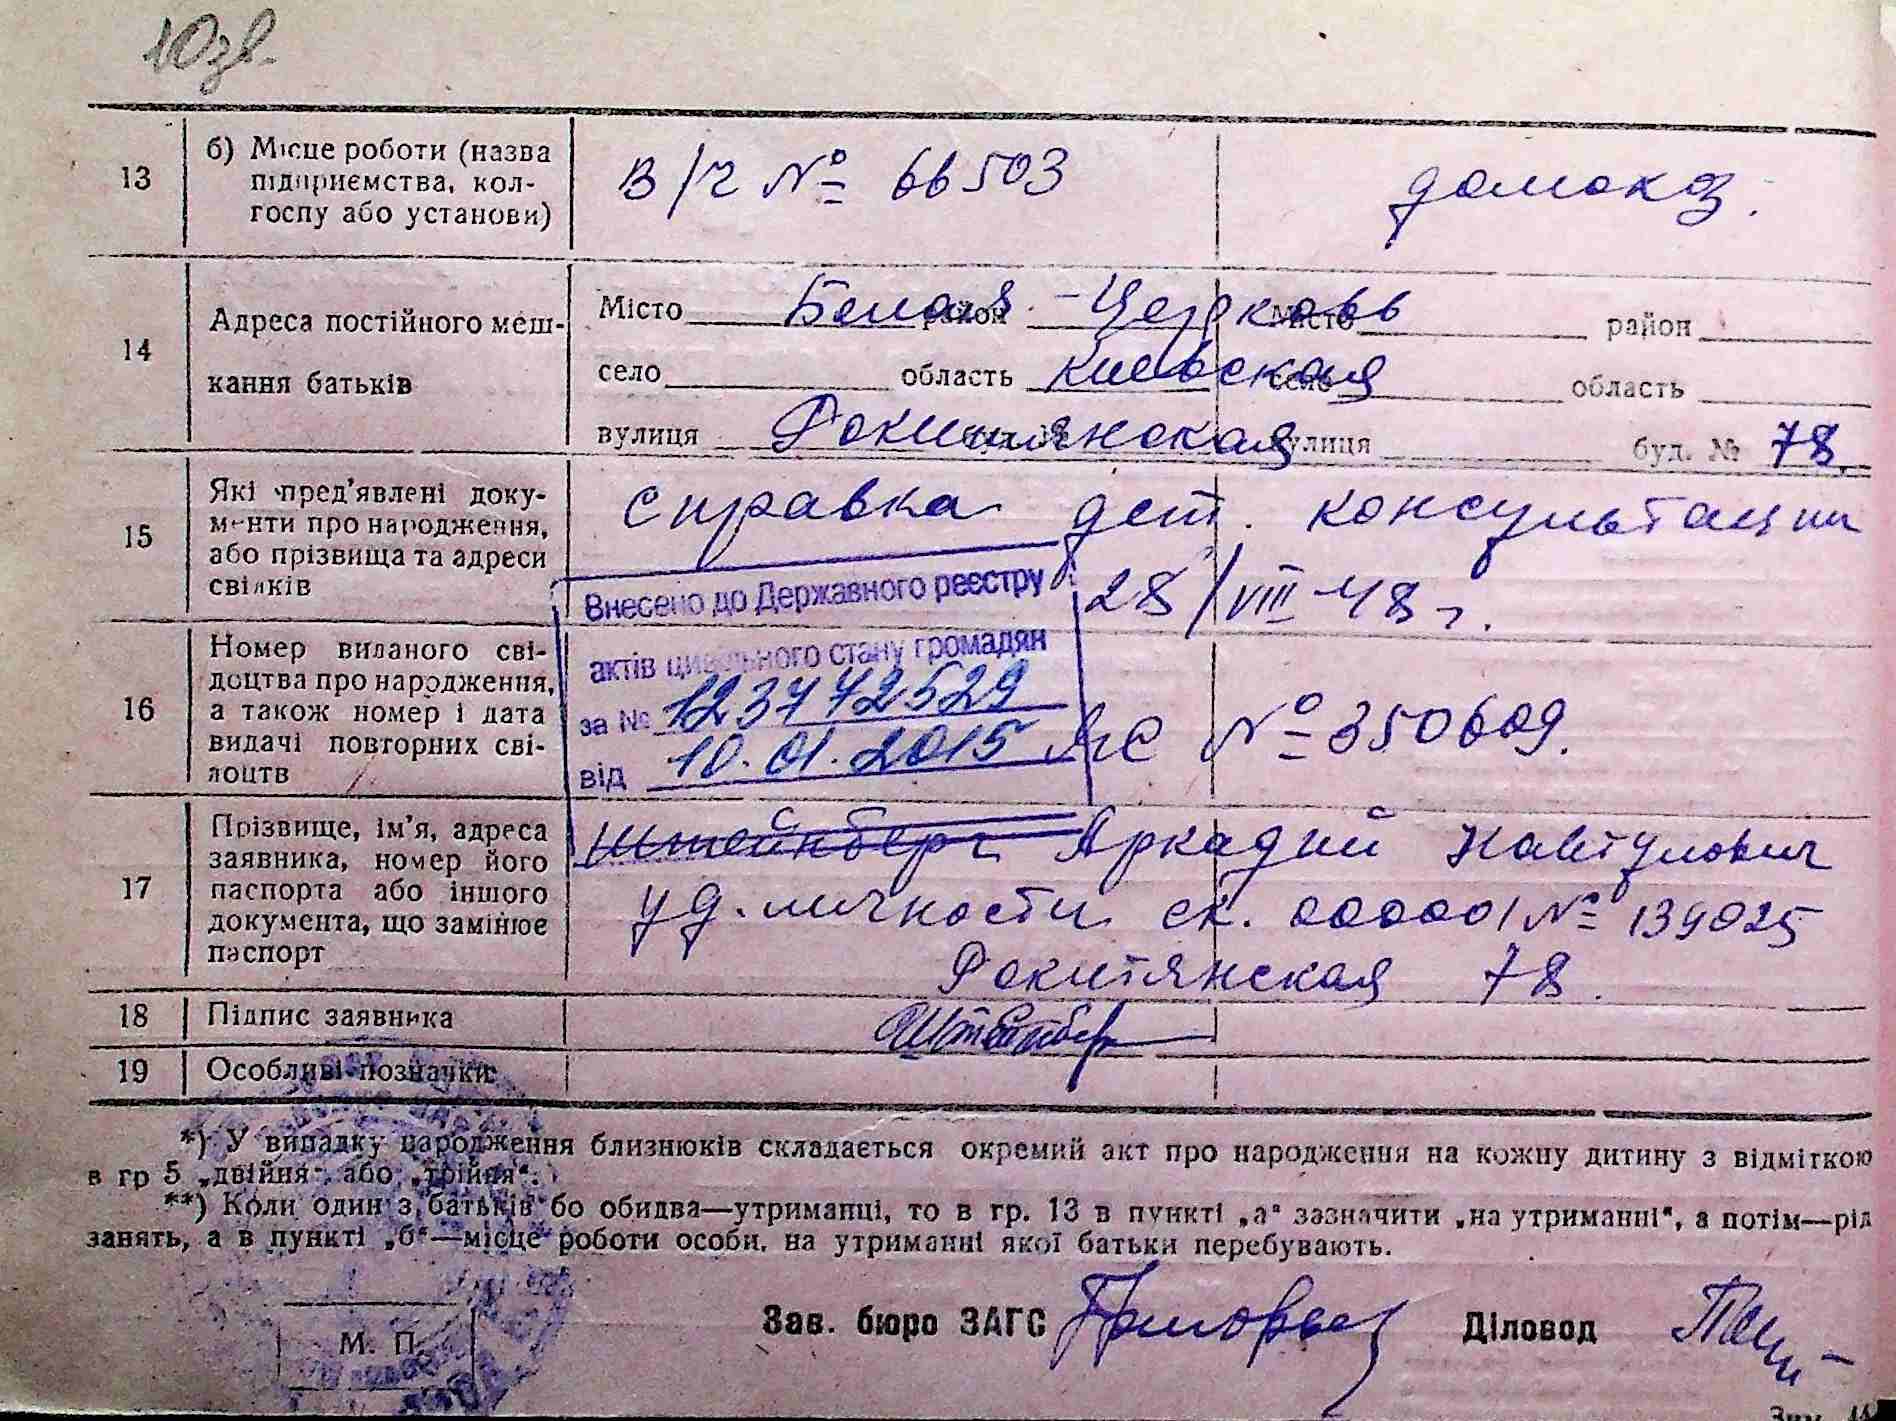 10зв.
13
б) Місце роботи (назва
підприємства, кол-
госпу або установи)
В/ч № 66503
домохоз.
14
Адреса постійного меш-
кання батьків
Місто Белая-Церковь район Місто район
село область Киевская село область
вулиця Рокитянская буд. № вулиця буд. № 78
15
Які пред'явлені доку-
менти про народження,
або прізвища та адреси
свідків
справка дет. консультации
28/VIII-48 г.
Внесено до Державного реєстру
актів цивільного стану громадян
за № 123772529
від 10.01.2015
16
Номер виданого сві-
доцтва про народження,
а також номер і дата
видачі повторних сві-
доцтв
ЯС № 350609.
17
Прізвище, ім'я, адреса
заявника, номер його
паспорта або іншого
документа, що замінює
паспорт
Штейнберг Аркадий
уд. личности ск. 000001 № 139025
Рокитянская 78.
18
Підпис заявника
19
Особливі позначки
*) У випадку народження близнюків складається окремий акт про народження на кожну дитину з відміткою
в гр 5 „двійня“ або „трійня“.
**) Коли один з батьків бо обидва—утриманці, то в гр. 13 в пункті „а“ зазначити „на утриманні“, а потім—рід
занять, а в пункті „б“—місце роботи особи, на утриманні якої батьки перебувають.
Зав. бюро ЗАГС
Діловод
М. П.